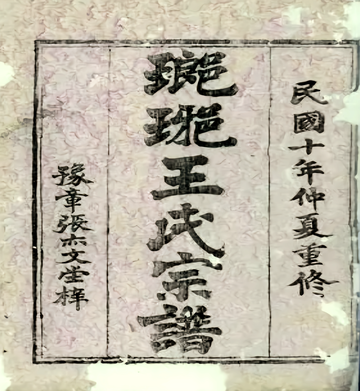 民國十年仲夏重修
瑯琊王氏宗譜
豫章張六文堂梓